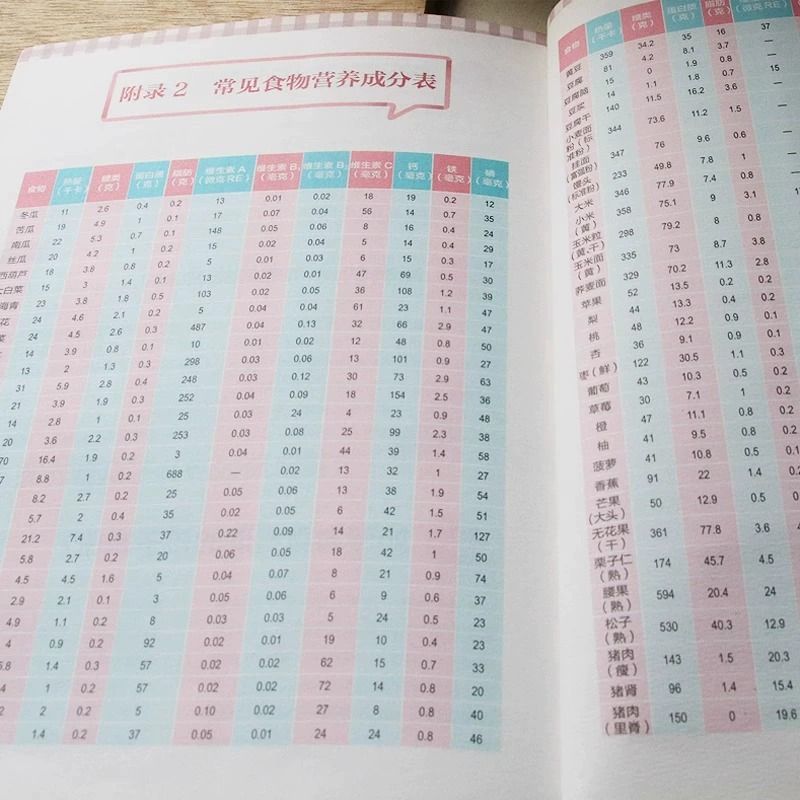 附录2 常见食物营养成分表
食物 热量（千卡） 糖类（克） 蛋白质（克） 脂肪（克） 维生素A（微克RE） 维生素B₁（毫克） 维生素B₂（毫克） 维生素C（毫克） 钙（毫克） 铁（毫克） 磷（毫克）
冬瓜 11 2.6 0.4 0.2 13 0.01 0.02 18 19 0.2 12
苦瓜 19 4.9 1 0.1 17 0.07 0.04 56 14 0.7 35
南瓜 22 5.3 0.7 0.1 148 0.05 0.06 8 16 0.4 24
丝瓜 20 4.2 1 0.2 15 0.02 0.04 5 14 0.4 29
西葫芦 18 3.8 0.8 0.2 5 0.01 0.03 6 15 0.3 17
大白菜 15 3 1.4 0.1 13 0.02 0.01 47 69 0.5 30
海青 23 3.8 1.8 0.5 103 0.02 0.05 36 108 1.2 39
花 24 4.6 2.1 0.2 5 0.04 0.04 61 23 1.1 47
菜 24 4.5 2.6 0.3 487 0.04 0.13 32 66 2.9 47
14 3.9 0.8 0.1 10 0.01 0.02 12 48 0.8 50
13 2 1.3 0.3 298 0.03 0.06 13 101 0.9 27
31 5.9 2.8 0.4 248 0.03 0.12 30 73 2.9 63
21 3.9 1.9 0.3 252 0.04 0.09 18 154 2.5 36
14 2.8 1 0.1 25 0.03 24 4 23 0.9 48
20 3.6 2.2 0.3 253 0.03 0.08 25 99 2.3 38
70 16.4 1.9 0.2 3 0.04 0.01 44 39 1.4 58
7 8.8 1 0.2 688 — 0.02 13 32 1 27
8.2 2.7 0.2 25 0.05 0.06 13 38 1.9 54
5.7 2 0.4 35 0.02 0.05 6 42 1.5 51
21.2 7.4 0.3 37 0.22 0.09 14 21 1.7 127
5.8 2.7 0.2 20 0.06 0.05 18 42 1 50
4.5 4.5 1.6 5 0.04 0.07 8 21 0.9 74
2.9 2.1 0.1 3 0.05 0.06 9 6 0.6 37
4.9 1.1 0.2 8 0.03 0.03 5 24 0.5 23
4 0.9 0.2 92 0.02 0.01 19 10 0.4 23
5.8 1.4 0.3 57 0.02 0.02 62 15 0.7 33
4 1 0.2 57 0.02 0.02 72 14 0.8 20
2 0.2 5 0.10 0.02 27 8 0.8 40
1.4 0.2 37 0.05 0.01 24 24 0.8 46
食物 热量（千卡） 糖类（克） 蛋白质（克） 脂肪（克） （微克RE）
黄豆 359 34.2 35 16 37
豆腐 81 4.2 8.1 3.7 —
豆腐脑 15 0 1.9 0.8 —
豆浆 14 1.1 1.8 0.7 15
豆腐干 140 11.5 16.2 3.6 —
小麦面粉（标准粉） 344 73.6 11.2 1.5 —
挂面（富强粉） 347 76 9.6 0.6 —
馒头（标准粉） 233 49.8 7.8 1 —
大米 346 77.9 7.4 0.8 —
小米（黄） 358 75.1 9 3.1 17
玉米粒（黄,干） 298 79.2 8 0.8
玉米面（黄） 335 73 8.7 3.8
荞麦面 329 70.2 11.3 2.8
苹果 52 13.5 0.2 0.2
梨 44 13.3 0.4 0.2
桃 48 12.2 0.9 0.1
杏 36 9.1 0.9 0.1
枣（鲜） 122 30.5 1.1 0.3
葡萄 43 10.3 0.5 0.2
草莓 30 7.1 1 0.2
橙 47 11.1 0.8 0.2
柚 41 9.5 0.8 0.2
菠萝 41 10.8 0.5 0.1
香蕉 91 22 1.4 0.2
芒果（大头） 50 12.9 0.5 0.
无花果（干） 361 77.8 3.6 4
栗子仁（熟） 174 45.7 4.5
腰果（熟） 594 20.4 24
松子（熟） 530 40.3 12.9
猪肉（瘦） 143 1.5 20.3
猪肾 96 1.4 15.4
猪肉（里脊） 150 0 19.6